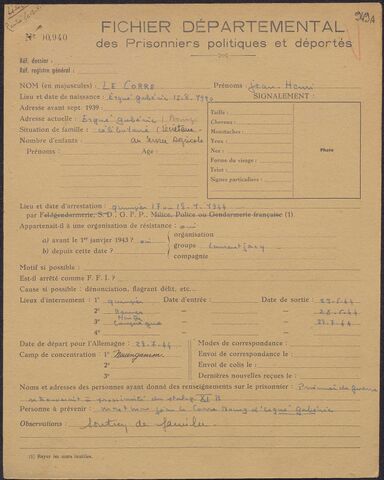 Nº 10.940
FICHIER DÉPARTEMENTAL
des Prisonniers politiques et déportés
Réf. dossier :
Réf. registre général :
NOM (en majuscules) : LE CORRE Prénoms : Jean-Henri
Lieu et date de naissance : Ergué Gabéric 12.8.1920
SIGNALEMENT :
Adresse avant sept. 1939 :
Adresse actuelle : Ergué Gabéric (Bourg)
Situation de famille : célibataire
Nombre d'enfants :
Prénoms : Age :
Taille :
Cheveux :
Moustaches :
Yeux :
Nez :
Forme du visage :
Teint :
Signes particuliers :
Photo
Lieu et date d'arrestation : Quimper 17 ou 18.4.1944
par Feldgendarmerie, S. D., G. F. P., Milice, Police ou Gendarmerie française (1)
Appartenait-il à une organisation de résistance : oui
a) avant le 1er janvier 1943 ? oui
b) depuis cette date ?
organisation
groupe
compagnie
Motif si possible :
Est-il arrêté comme F. F. I. ?
Cause si possible : dénonciation, flagrant délit, etc...
Lieux d'internement : 1° Quimper Date d'entrée : Date de sortie :
2° Rennes
3°
4° Compiègne
Date de départ pour l'Allemagne :
Camp de concentration : 1° Neuengamme
2°
3°
4°
Modes de correspondance :
Envoi de correspondance le :
Envoi de colis le :
Dernières nouvelles reçues le :
Noms et adresses des personnes ayant donné des renseignements sur le prisonnier : Prisonnier de guerre
à proximité du stalag XI B
Personne à prévenir : Le Corre Bourg d'Ergué Gabéric
Observations : Soutien de famille
(1) Rayer les noms inutiles.